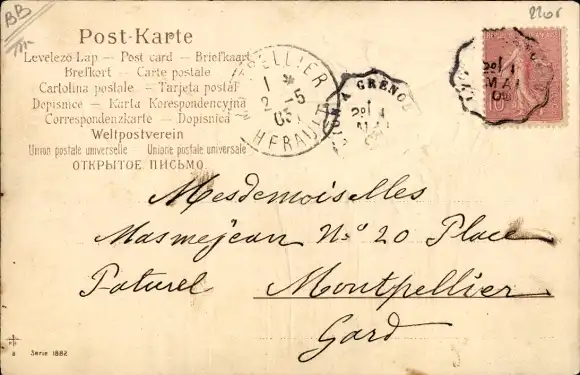 BB
2205
Post-Karte
Levelező-Lap — Post card — Briefkaart
Brefkort — Carte postale
Cartolina postale — Tarjeta postal
Dopisnice — Karta Korespondencyjna
Correspondenzkarte — Dopisnica
Weltpostverein
Union postale universelle Unione postale universale
ОТКРЫТОЕ ПИСЬМО
PELLIER
1 *
2 - 5
05
HERAULT
A GRENOB
MAI
MAI
05
10
Mesdemoiselles
Masmejean No 20 Place
Faturel Montpellier
Gard
Serie 1882